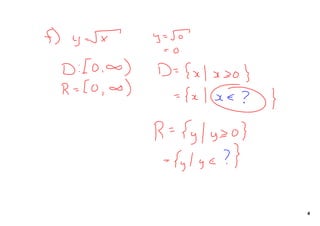 f) y=√x
D:[0,∞)
R=[0,∞)
y=√0
=0
D={x|x≥0}
={x|x∈ ? }
R={y|y≥0}
={y|y∈ ?}